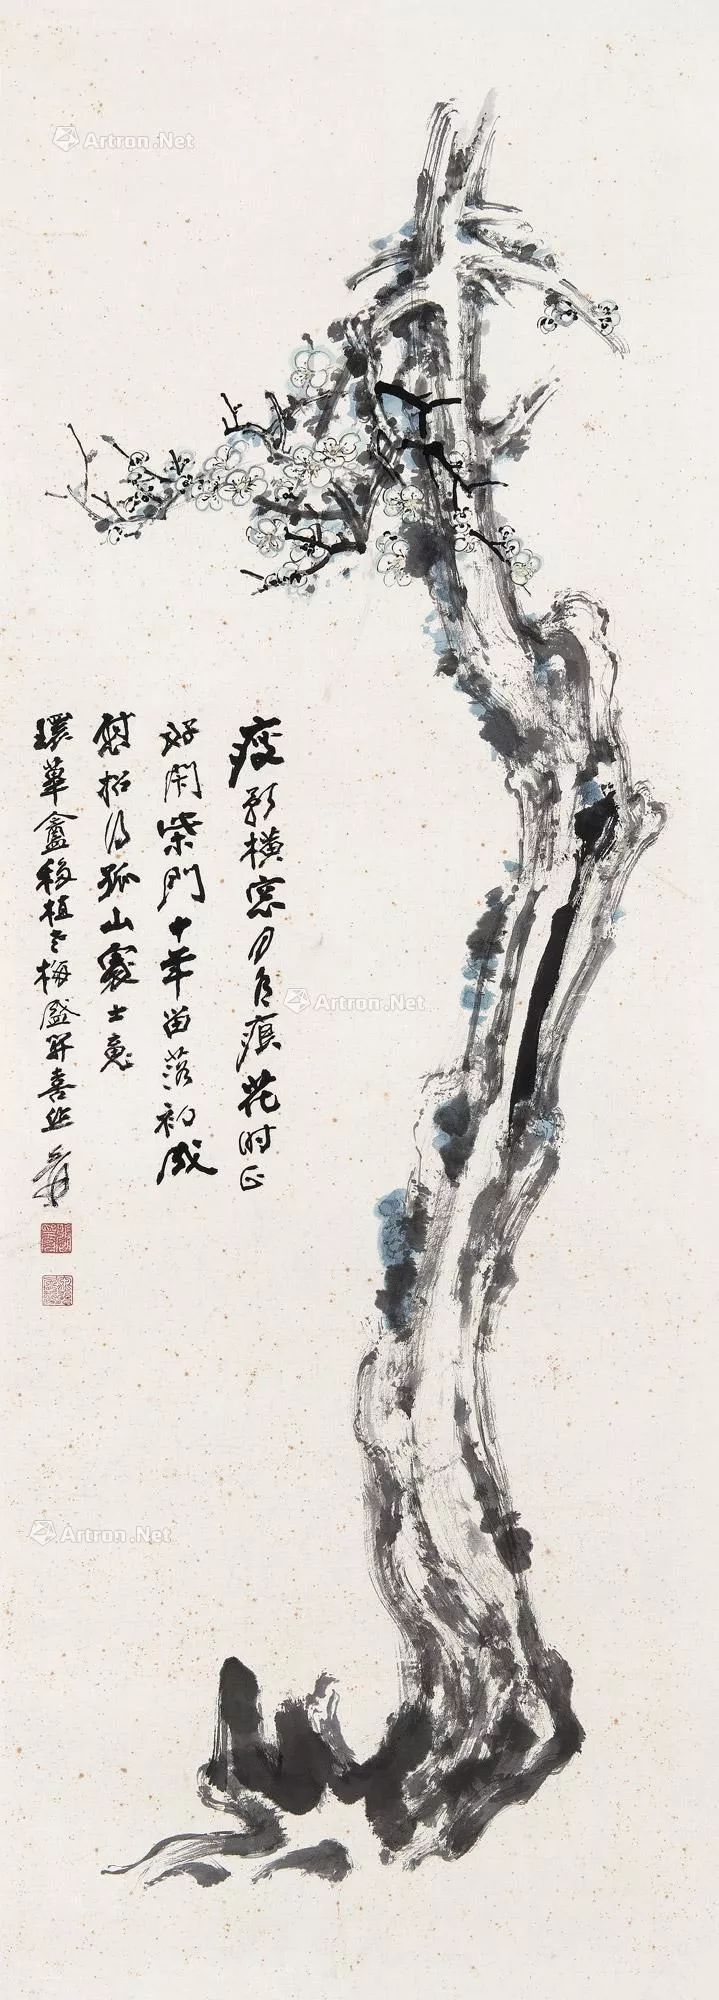 Artron.Net
瘦影橫窓月有痕花时正
好閉柴門十年留落初成
慰招得孤山處士魂
環蓽盦移植老梅盛開喜作 爰
Artron.Net
Artron.Net